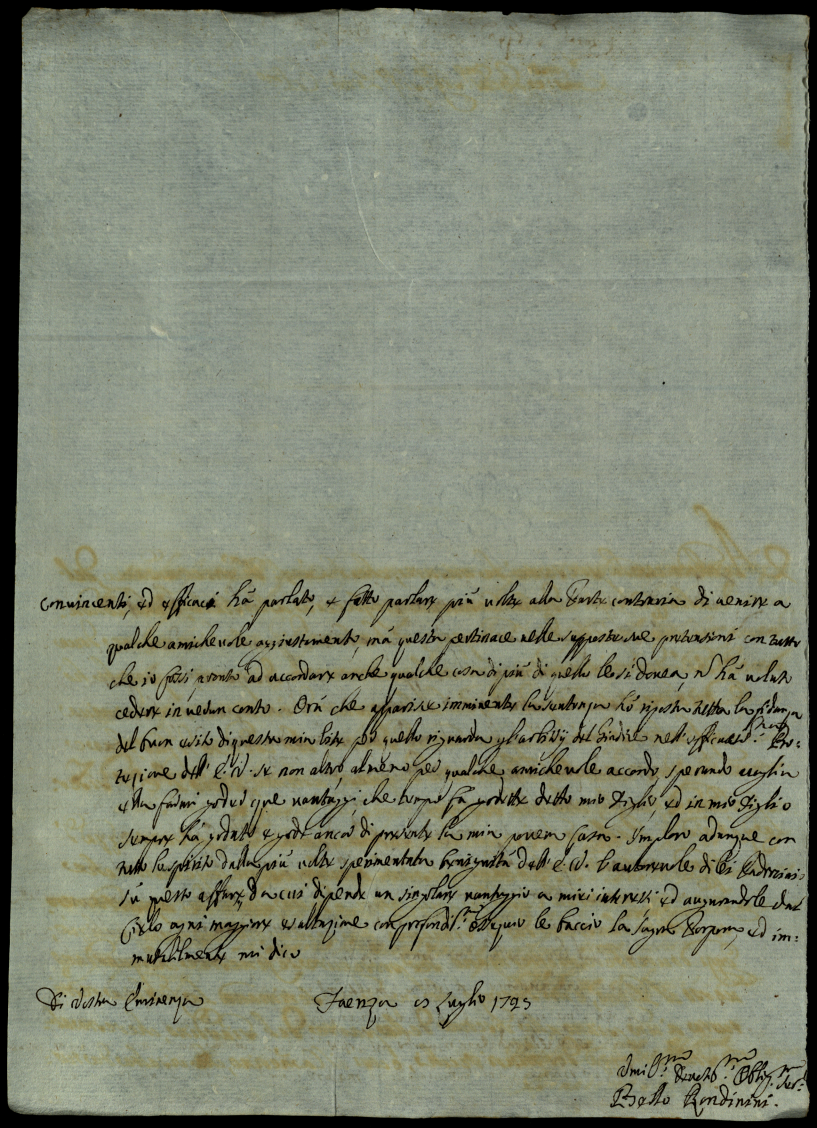 convincenti, ed efficaci hà parlato, e fatto parlare più volte alla Parte contraria di venire a
qualche amichevole aggiustamento, mà questa pertinace nelle supposte sue pretensioni con tutto
che io fossi pronto ad accordare anche qualche cosa di più di quello le si dovea, nō hà voluto
cedere in verun conto. Orà che apparisce imminente la sentenza hò riposta tutta la fidanza
del buon esito di questa mia lite per quello riguarda gl'arbitrij del Giudice nell'efficaciss.ª Pro:
tezione dell'E.V. se non altro, almeno per qualche amichevole accordo, sperando voglia
ella farmi goder que' vantaggi che tempo fà godette detto mio Figlio, ed in mio Figlio
sempre hà goduto e gode ancor di presente la mia povera Casa. Imploro adunque con
tutto lo spirito dalla più volte sperimentata benignità dell'E.V. l'autorevole di lei Padrocinio
sù questo affare da cui dipende un singolare vantaggio a miei interessi ed augurandole dal
Cielo ogni maggiore esaltazione con profondiss.º ossequio le baccio la Sagra Porpora, ed im:
mutabilmente mi dico
Di Vostra Eminenza
Faenza Luglio 1723
Umil.mo Devot.mo Obblig.mo Ser.e
Rondinini.